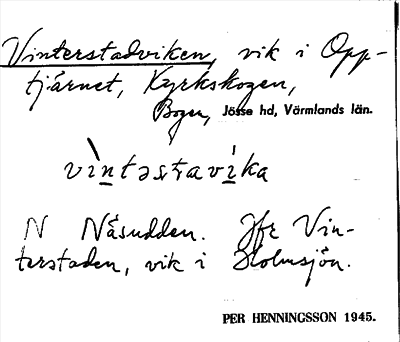 Vinterstadviken, vik i Opp-
tjärnet, Kyrkskogen,
Bogen, Jösse hd, Värmlands län.
vìntəstravíka
N Näsudden. Jfr Vin-
terstaden, vik i Holmsjön.
PER HENNINGSSON 1945.